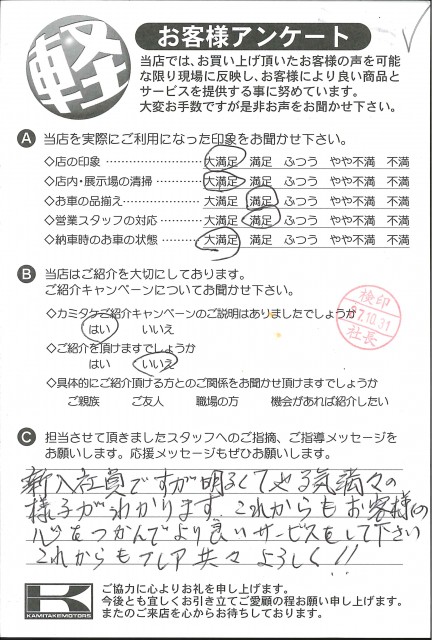 軽
お客様アンケート
当店では、お買い上げ頂いたお客様の声を可能
な限り現場に反映し、お客様により良い商品と
サービスを提供する事に努めています。
大変お手数ですが是非お声をお聞かせ下さい。
A 当店を実際にご利用になった印象をお聞かせ下さい。
◇店の印象 大満足 満足 ふつう やや不満 不満
◇店内・展示場の清掃 大満足 満足 ふつう やや不満 不満
◇お車の品揃え 大満足 満足 ふつう やや不満 不満
◇営業スタッフの対応 大満足 満足 ふつう やや不満 不満
◇納車時のお車の状態 大満足 満足 ふつう やや不満 不満
B 当店はご紹介を大切にしております。
ご紹介キャンペーンについてお聞かせ下さい。
◇カミタケご紹介キャンペーンのご説明はありましたでしょうか
はい いいえ
検印
17.10.31
社長
◇ご紹介を頂けますでしょうか
はい いいえ
◇具体的にご紹介頂ける方とのご関係をお聞かせ頂けますでしょうか
ご親族 ご友人 職場の方 機会があれば紹介したい
C 担当させて頂きましたスタッフへのご指摘、ご指導メッセージを
お願いします。応援メッセージもぜひお願いします。
新入社員ですが明るくてやる気満々の
様子がうわかります。これからもお客様の
心をつかんでより良いサービスをして下さい
これからもフレア共々よろしく!!
K
KAMITAKEMOTORS
ご協力に心よりお礼を申し上げます。
今後とも宜しくお引き立てご愛顧の程お願い申し上げます。
またのご来店を心からお待ちしております。